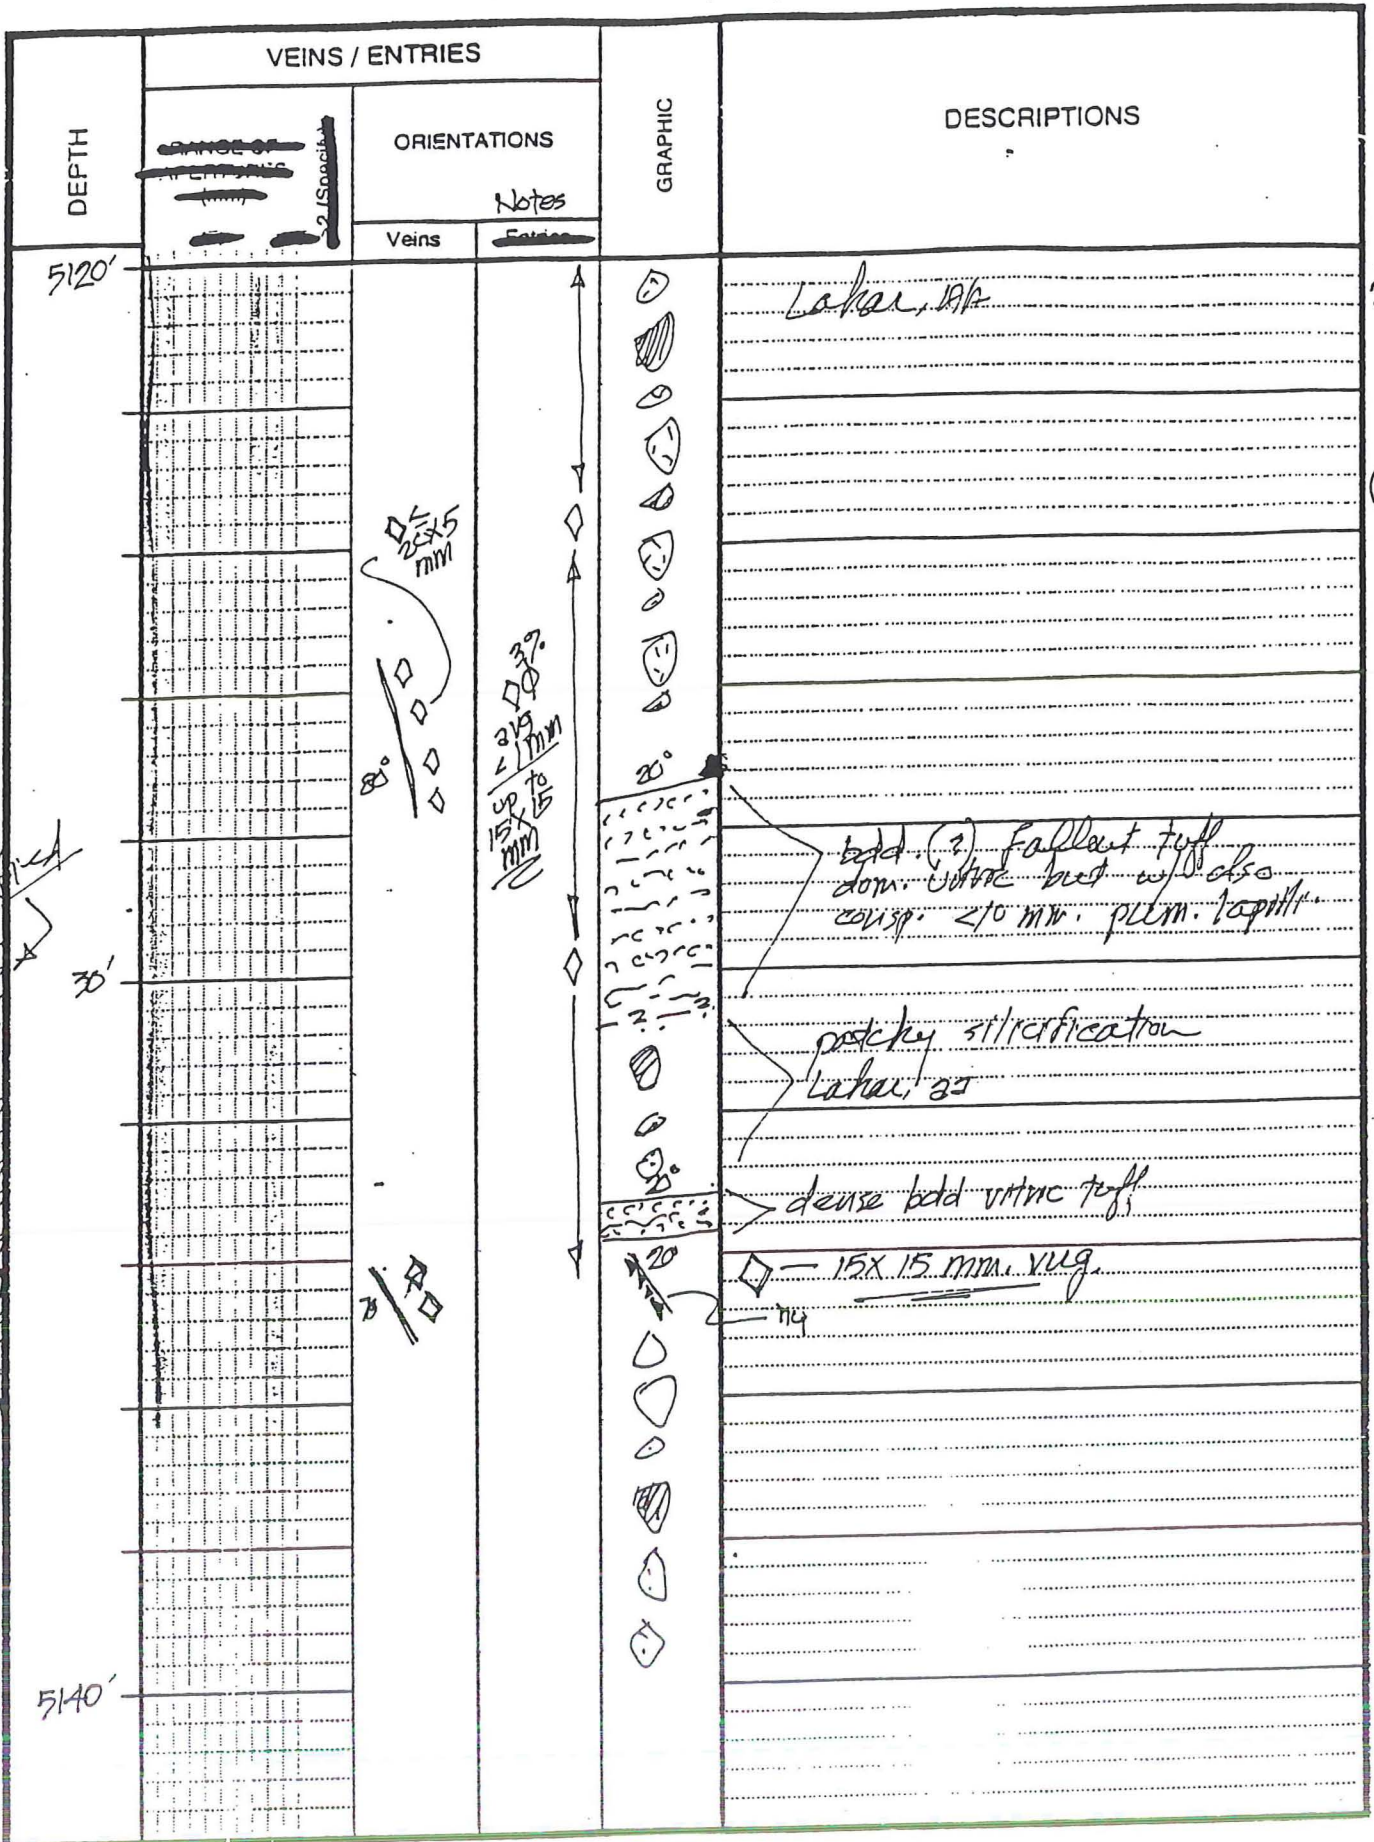 VEINS / ENTRIES
DEPTH
ORIENTATIONS
Notes
Veins
GRAPHIC
DESCRIPTIONS
5120'
Lahar, AA
mm
80°
3%
avg
<1mm
up to
15x15
mm
20°
bdd. (?) Fallout tuff
dom. vitric but w/ also
consp. <10 mm. pum. lapilli.
30'
patchy silicification
Lahar, aa
20°
dense bdd vitric tuff
20
15x15 mm. vug.
5140'